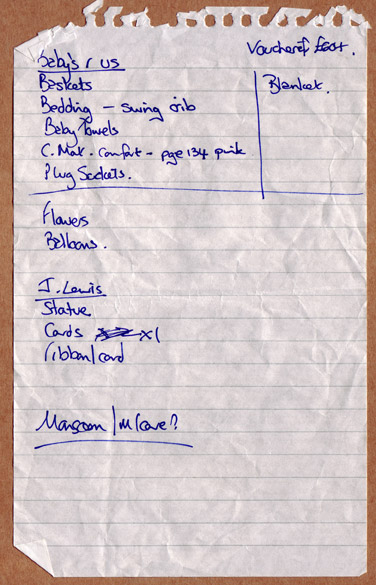 Baby's r us
Voucher
Baskets
Blanket.
Bedding – swing crib
Baby Towels
C. Mat. Comfort – pge 134 pink
Plug Sockets.
Flowers
Balloons.
J. Lewis
Statue
Cards x1
ribbon/card
M/care?